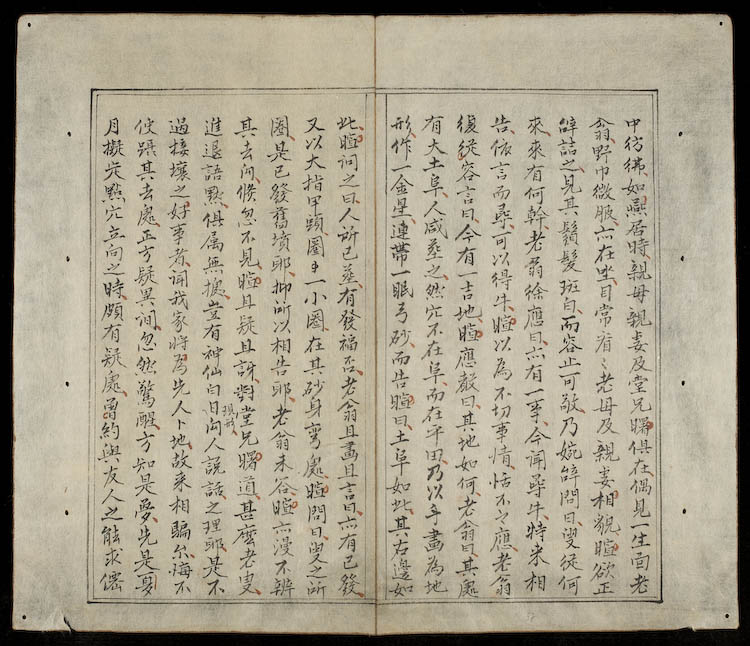 中彷彿如燕居時親母親妻及堂兄曙俱在偶見一生面老
翁野巾微服亦在坐目常看々老母及親妻相貌暄欲正
辞詰之見其鬚髮斑白而容止可敬乃婉辞問曰叟從何
來來有何幹老翁徐應曰亦有一事今闻尋牛特来相
告依言而尋可以得牛暄以為不切事情恬不之應老翁
復從容言曰今有一吉地暄應聲曰其地如何老翁曰其處
有大土阜人咸塟之然穴不在阜而在平田乃以手畫為地
形作一金星連帶一眠弓砂而告暄曰土阜如此其右邊如
此暄问之曰人所已塟有發福否老翁且畫且言曰亦有已發
又以大指甲顕圈一小圈在其砂身彎處暄問曰叟之所
圈是已發舊墳耶抑所以相告耶老翁未答暄亦漫不辨
其去向倏忽不見暄且疑且訝對堂兄曙道甚麽老叟
進退語黙俱属無據豈有神仙白日現形向人説話之理耶是不
過接壤之好事者闻我家將為先人卜地故来相騙尔悔不
使躡其去處正方疑異间忽然驚醒方知是夢先是夏
月擬定點穴立向之時頗有疑處曾約與友人之能求儒